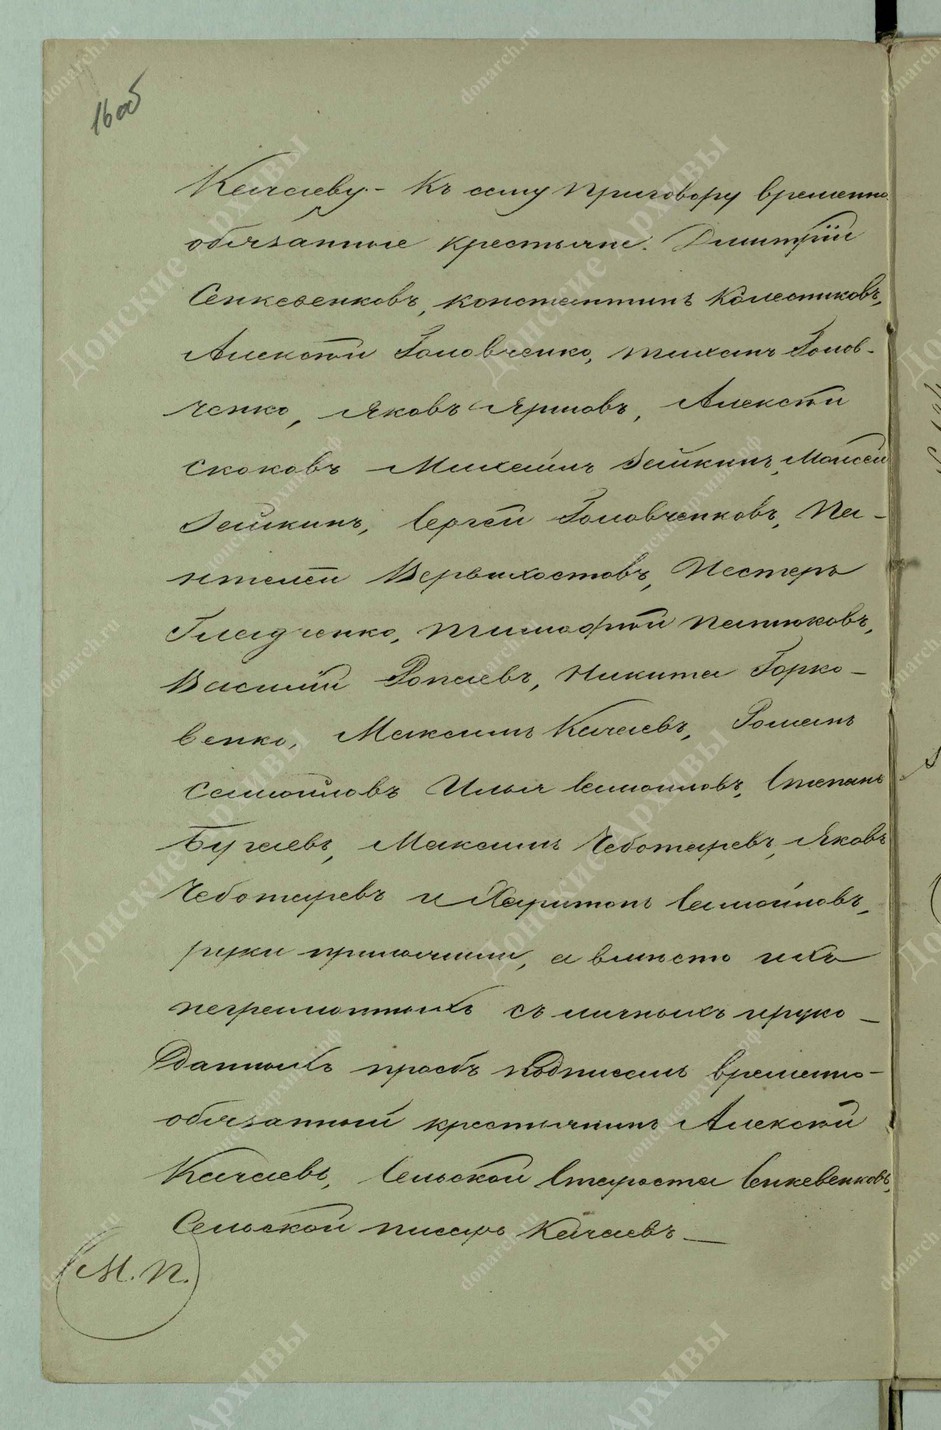 16 об
Качаеву. - Къ сему приговору временно
обязанные крестьяне: Дмитрій
Сенкевенковъ, Константинъ Колестиковъ,
Алексѣй Головченко, Тихонъ Голов-
ченко, Яковъ Яриловъ, Алексѣй
Скоковъ Михаилъ Зейкинъ, Моисей
Зейкинъ, Сергей Головченковъ, Па-
нтелей Вервыхостовъ, Нестеръ
Гладченко, Тимофѣй Пятюковъ,
Василій Ропаевъ, Никита Горко-
венко, Максимъ Качаевъ, Романъ
Самойловъ Илья Самойловъ, Степанъ
Бугаевъ, Максимъ Чеботаревъ, Яковъ
Чеботаревъ и Харитонъ Самойловъ,
руки приложили, а вмѣсто ихъ
неграмотныхъ съ личныхъ и руко-
данныхъ прозбъ подписалъ временно-
обязанный крестьянинъ Алексѣй
Качаевъ, Сельской Староста Сенкевенковъ,
Сельской писарь Качаевъ —
М. П.